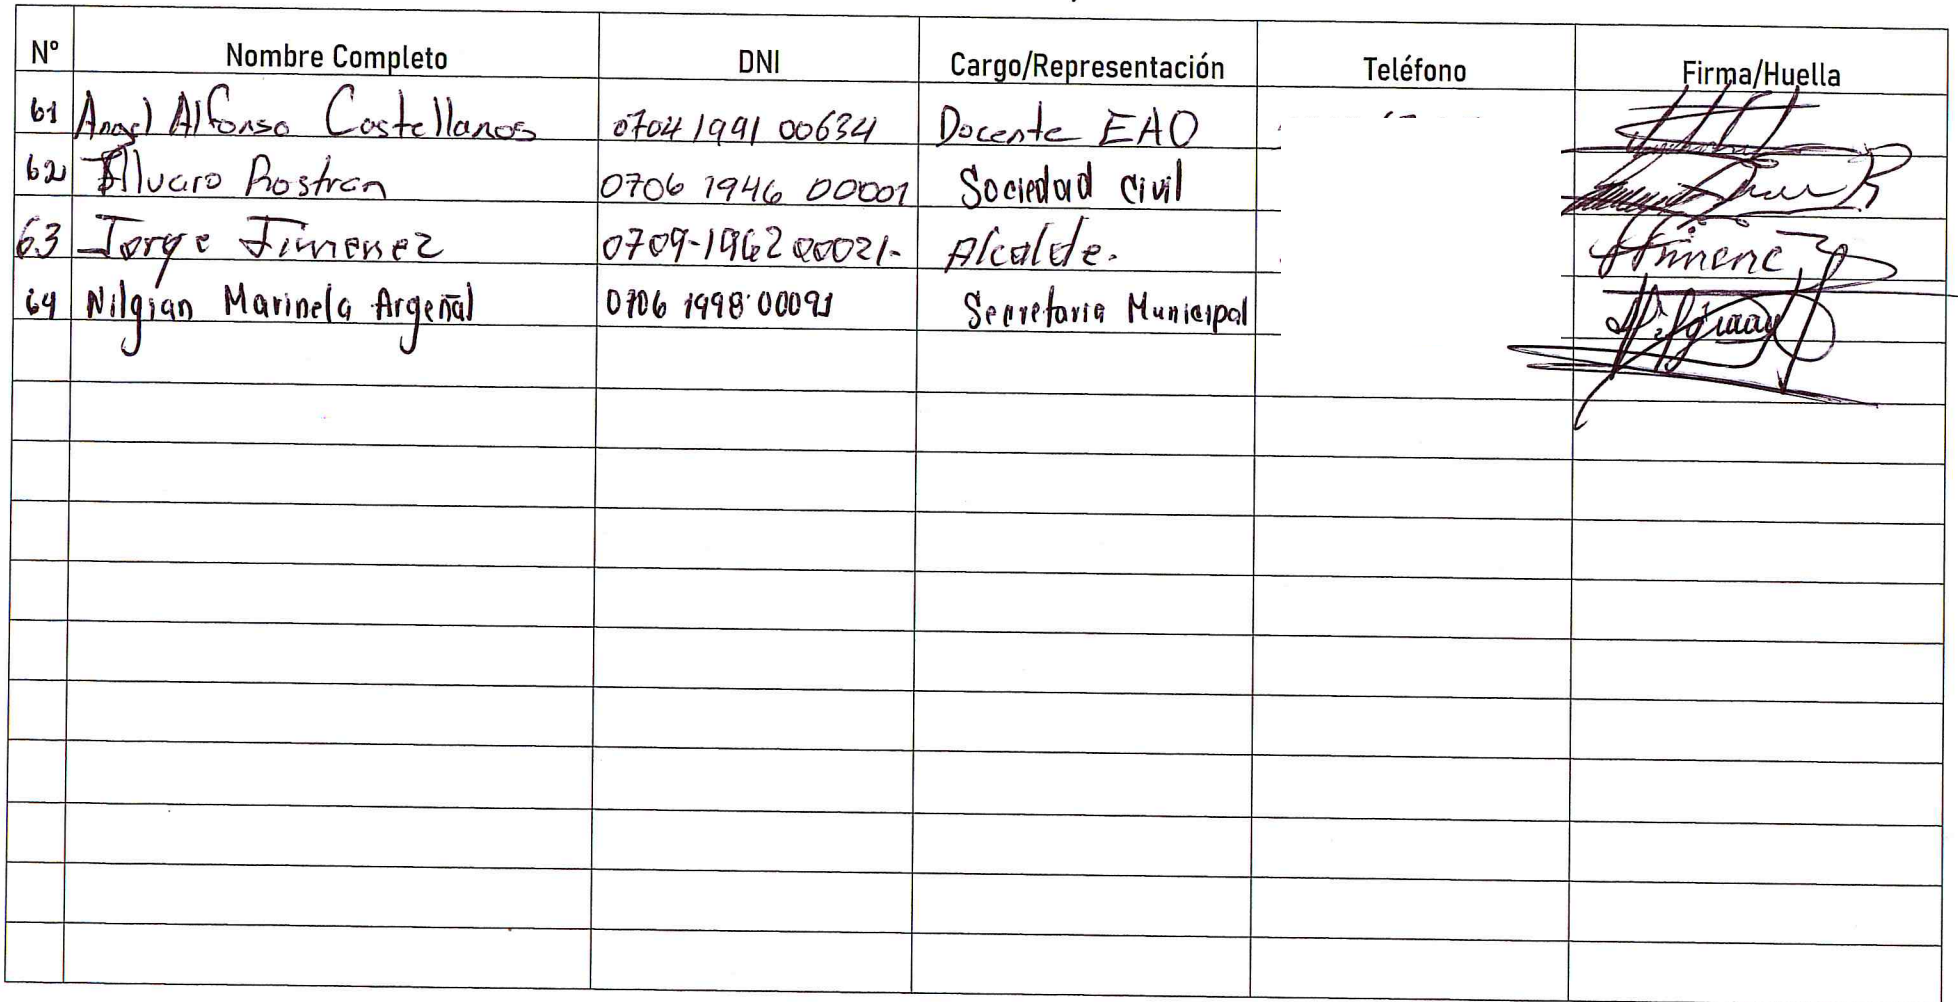 Nº Nombre Completo DNI Cargo/Representación Teléfono Firma/Huella
61 Angel Alfonso Castellanos 0704 1991 00634 Docente EAO
62 Alvaro Rostran 0706 1946 00001 Sociedad Civil
63 Jorge Jimenez 0709-1962 00021- Alcalde. Jimenez
64 Nilgian Marinela Argeñal 0706 1998 00091 Secretaria Municipal